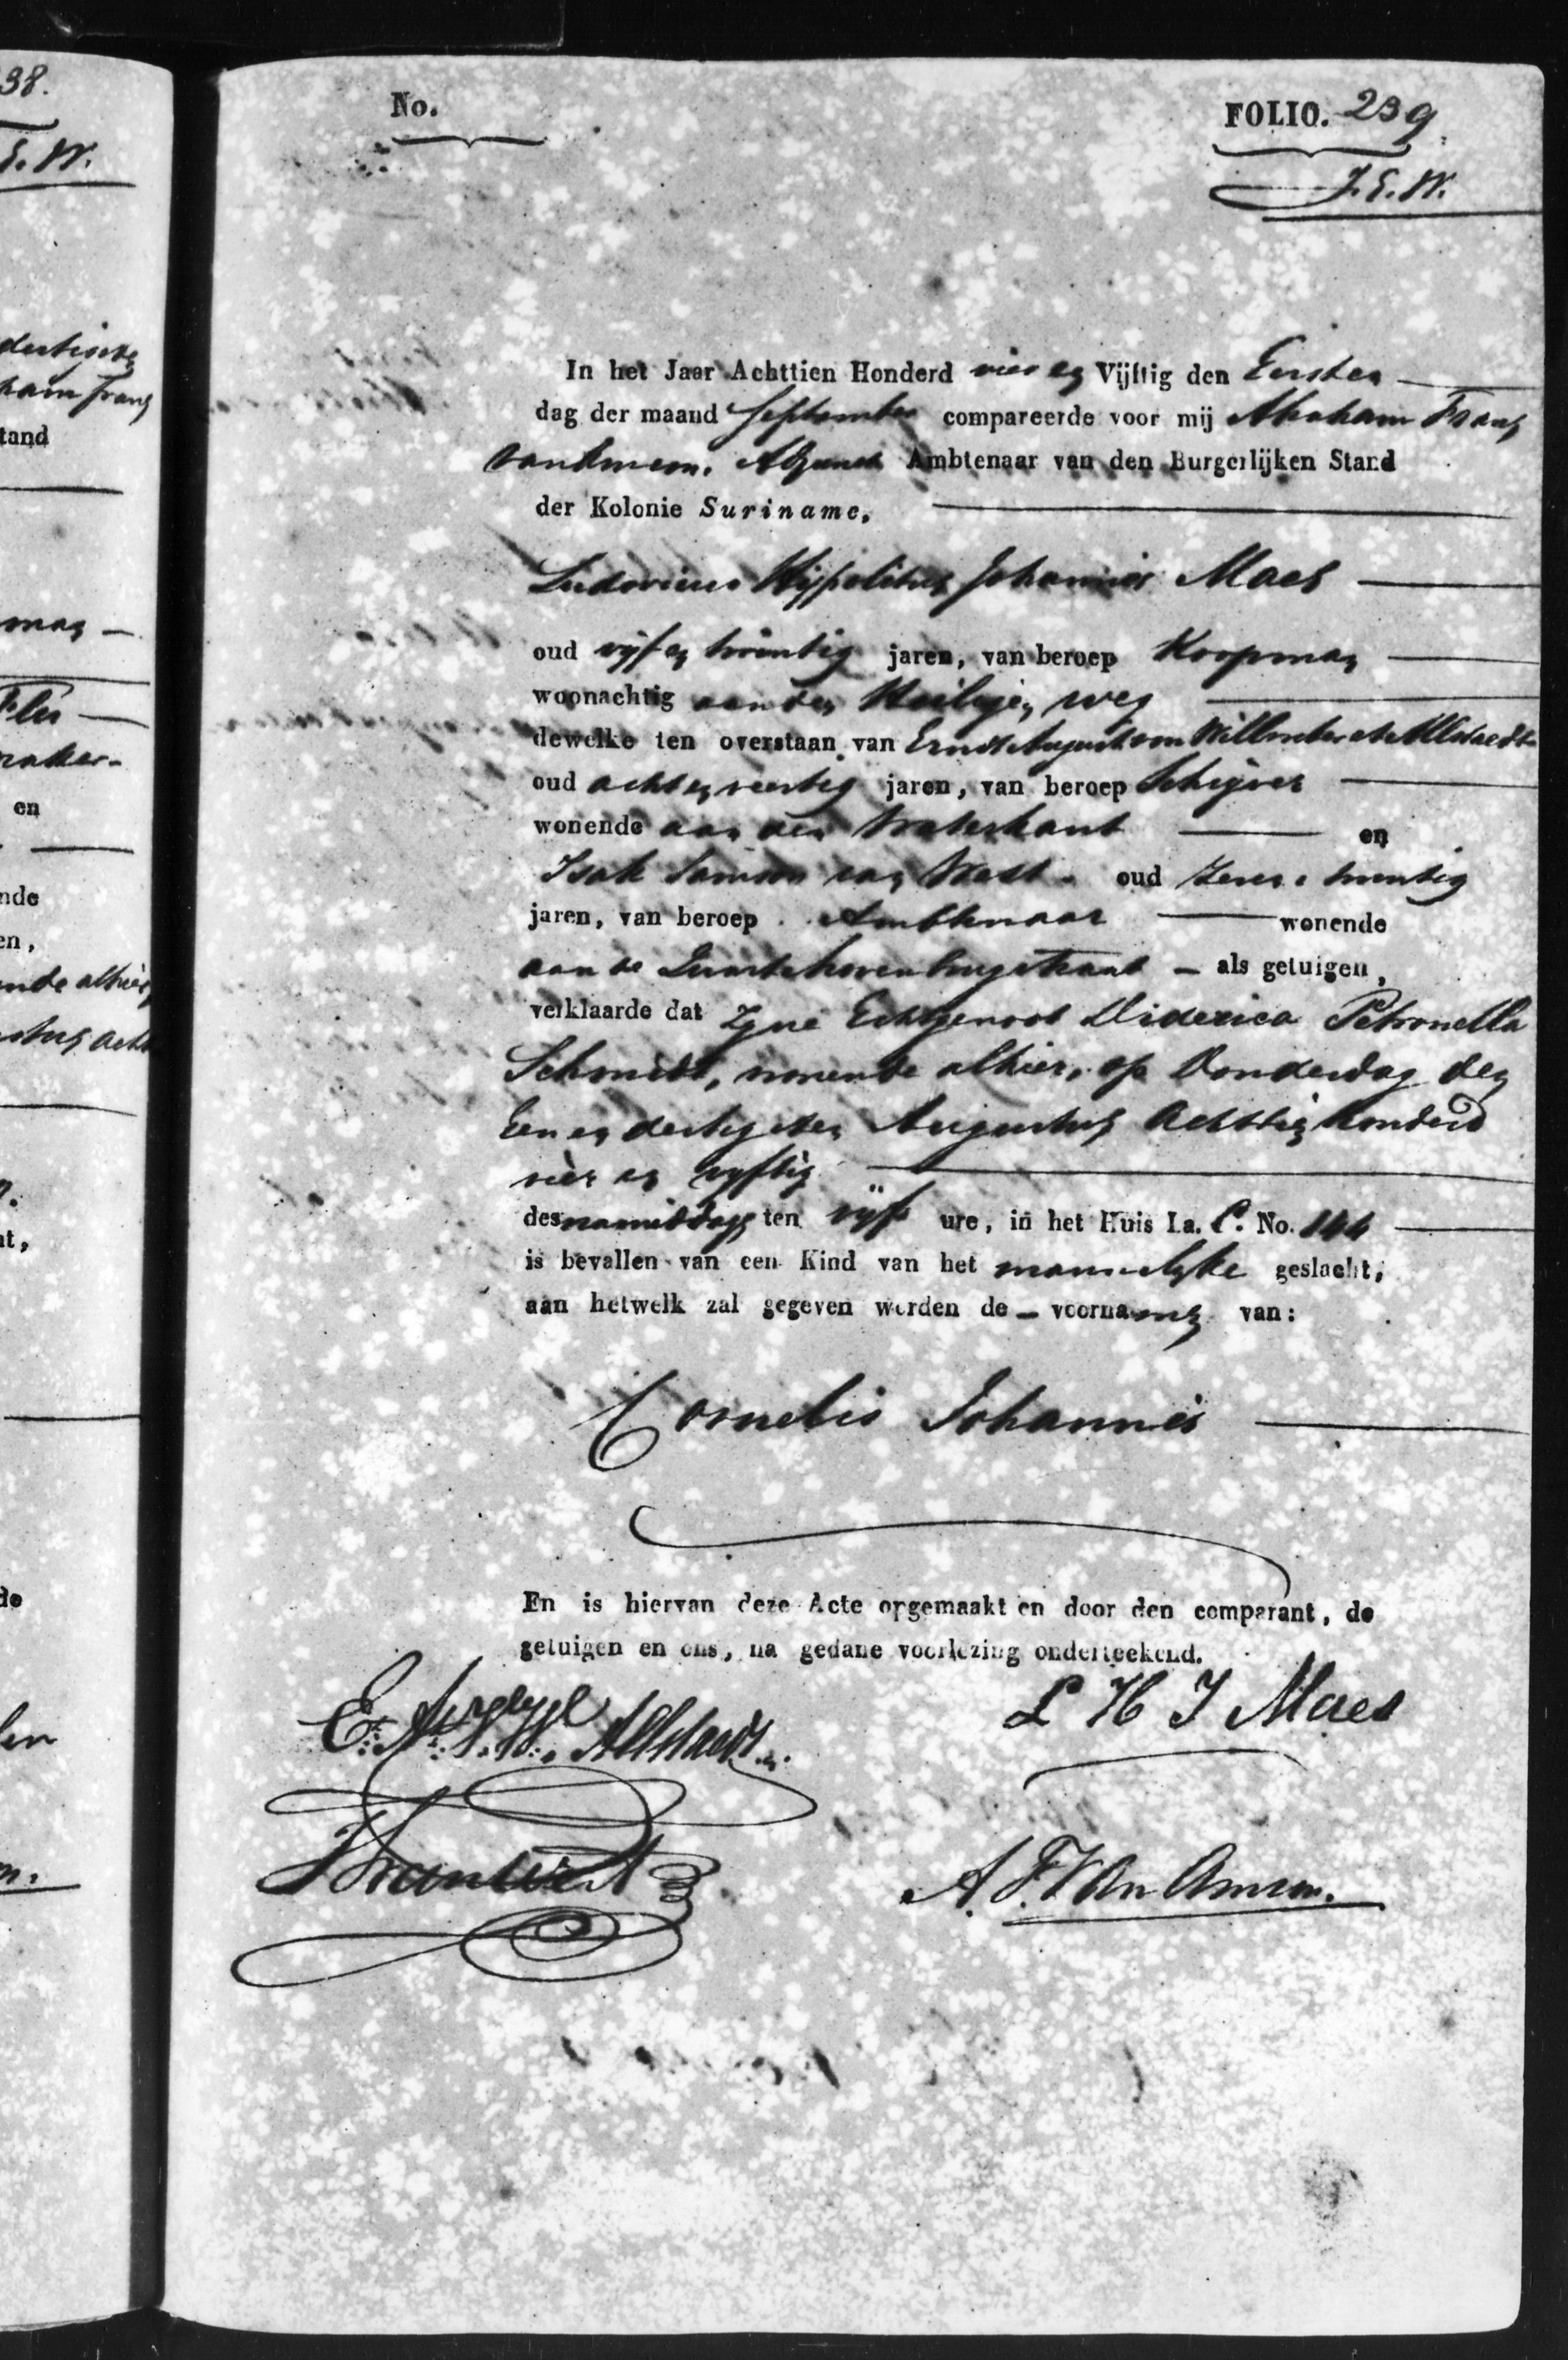 38.
J.E.W.
No.
FOLIO. 239
J.E.W.
dertigste
ham Frans
tand
man
en
nde
en,
nde alhier
de
In het Jaar Achttien Honderd vier en Vijftig den Eersten
dag der maand September compareerde voor mij Abraham Frans
van Amson, Adjunct Ambtenaar van den Burgerlijken Stand
der Kolonie Suriname,
Ludovicus Hippolitus Johannes Maes
oud vijf en twintig jaren, van beroep Koopman
woonachtig aan den Heiligen weg
dewelke ten overstaan van Ernst August von Allstaedt
oud acht en veertig jaren, van beroep Schrijver
wonende aan den Waterkant en
Isak Samson van West oud zeven twintig
jaren, van beroep Ambtenaar wonende
aan de Zwartehovenbrugstraat - als getuigen,
verklaarde dat zyne Echtgenoot Diderica Petronella
Schmidt, wonende alhier, op Donderdag den
Een en dertigsten Augustus Achttien honderd
vier en vyftig
des namiddags ten vijf ure, in het Huis La. C. No. 144
is bevallen van een Kind van het mannelyke geslacht,
aan hetwelk zal gegeven worden de - voornamen van:
Cornelis Johannes
En is hiervan deze Acte opgemaakt en door den comparant, de
getuigen en ons, na gedane voorlezing onderteekend.
L H J Maes
Allstaedt
A. F. Van Amson.